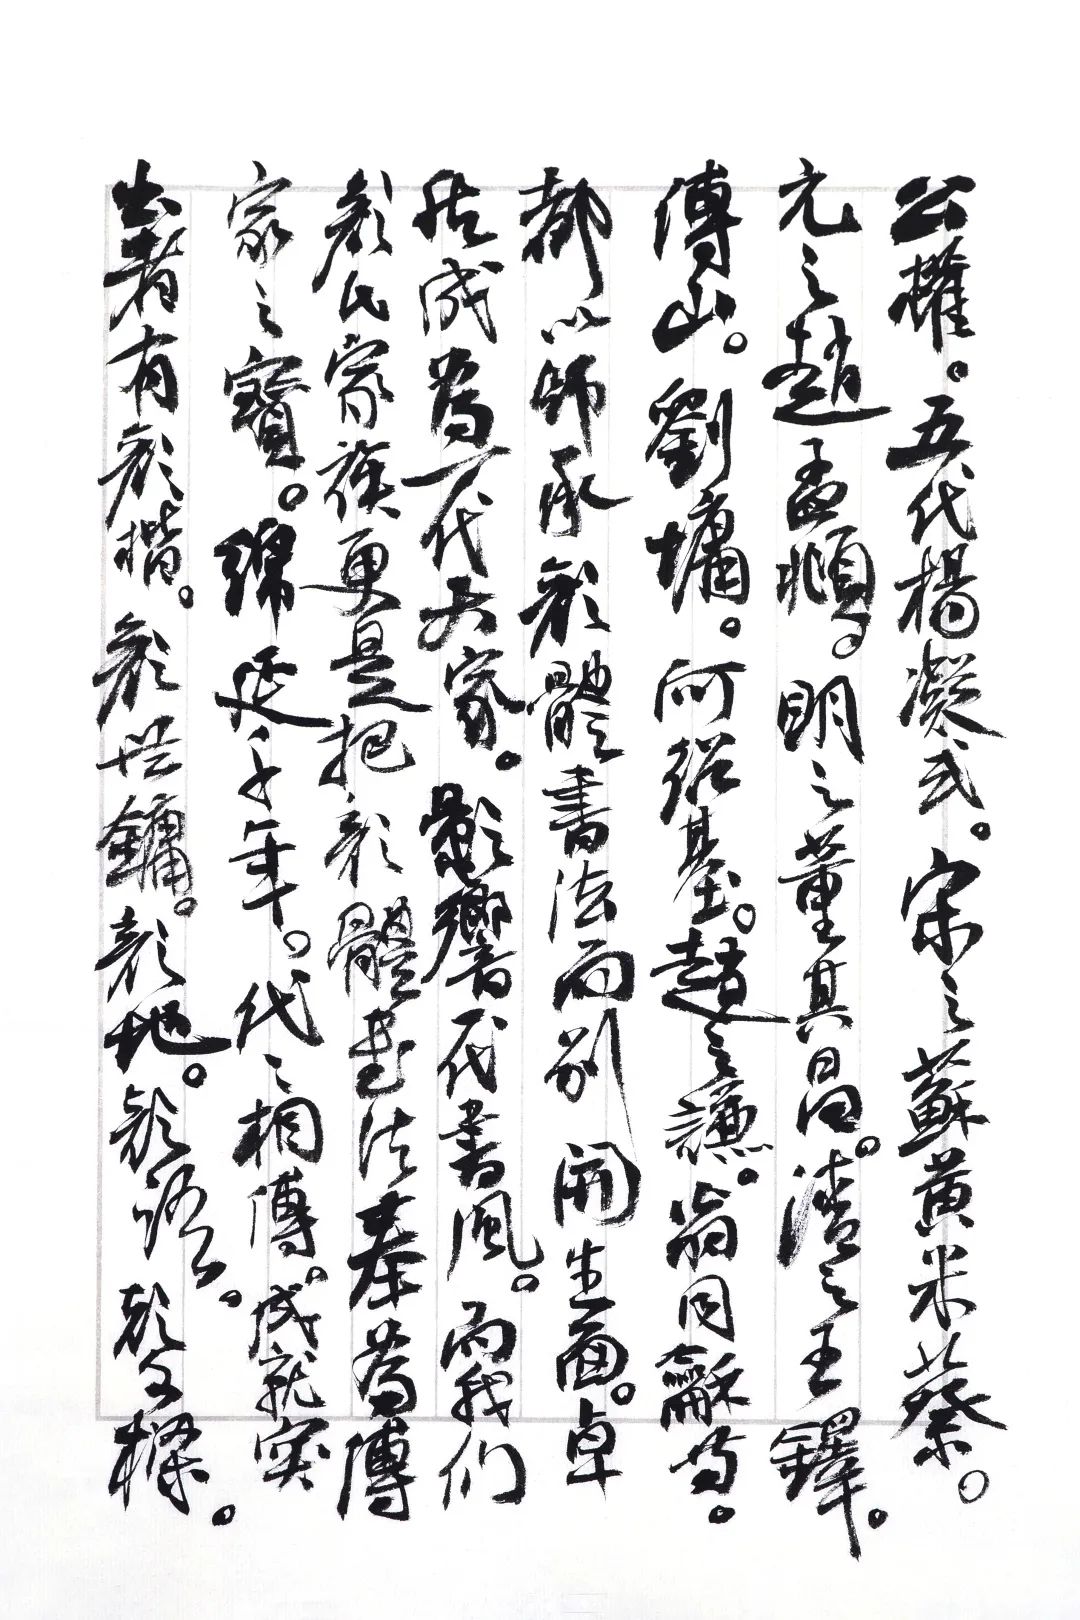 公權。五代楊凝式。宋之蘇黃米蔡。
元之趙孟頫。明之董其昌。清之王鐸。
傅山。劉墉。何紹基。趙之謙。翁同龢等。
都以師承顏體書法而別開生面。卓
然成為一代大家。影響一代書風。而我們
顏氏家族更是把顏體書法奉為傳
家之寶。綿延千年。代代相傳。成就突
出者有顏楷。顏世鏞。顏地。顏語。顏文樑。